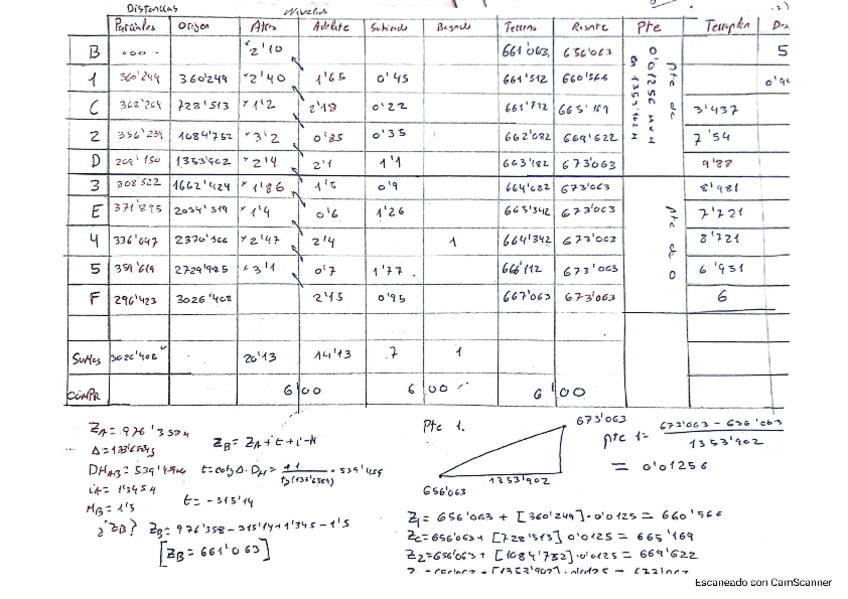 Distancias Niveles
Parciales Origen Atras Adelante Subiendo Bajando Terreno Rasante Pte Terraplen Des
B ... 2'10 661'063 656'063 5
1 360'249 360'249 2'40 1'65 0'45 661'512 660'566
C 368'264 728'513 1'2 2'18 0'22 661'732 665'169 3'437
2 356'239 1084'752 3'2 0'85 0'35 662'082 669'622 7'54
D 269'150 1353'902 2'4 2'1 1'1 663'182 673'063 9'88
3 308'522 1662'424 1'86 1'5 0'9 664'082 673'063 8'981
E 371'895 2034'319 1'4 0'6 1'26 665'342 673'063 7'721
4 336'047 2370'366 2'47 2'4 1 664'342 673'063 8'721
5 359'619 2729'985 3'1 0'7 1'77 666'112 673'063 6'951
F 296'423 3026'408 2'15 0'95 667'063 673'063 6
pte de
0'01256
pte de 0
Sumas 3026'408 20'13 14'13 7 1
COMPR 6'00 6'00 6'00
ZA = 976'3584
DHAB = 539'4594
iA = 1'3454
MB = 1'5
¿ZB?
ZB = ZA + t + i - M
t = cotg Δ · DH =
t = -315'14
ZB = 976'358 - 315'14 + 1'345 - 1'5
[ZB = 661'063]
Pte 1.
673'063
1353'902
656'063
pte 1 = 673'063 - 656'063
1353'902
= 0'01256
Z1 = 656'063 + [360'249] · 0'0125 = 660'566
Zc = 656'063 + [728'513] 0'0125 = 665'169
Z2 = 656'063 + [1084'752] · 0'0125 = 669'622
Escaneado con CamScanner